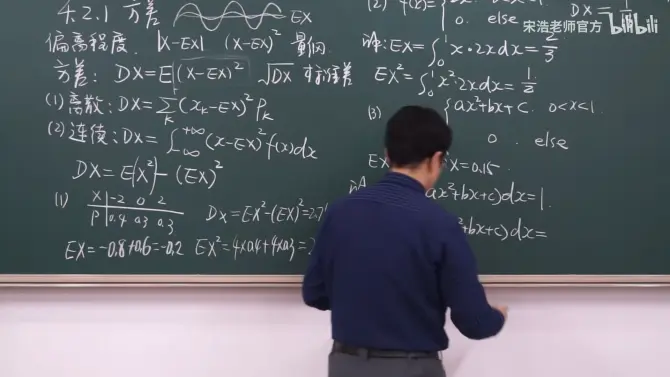 4.2.1 方差 EX
偏离程度. |X-EX| (X-EX)² 量纲
方差: DX=E(X-EX)² √DX 标准差
(1) 离散: DX=∑ₖ(xₖ-EX)²Pₖ
(2) 连续: DX=∫₋∞⁺∞(x-EX)²f(x)dx
DX=E(X²)-(EX)²
(1) X -2 0 2
P 0.4 0.3 0.3
DX=EX²-(EX)²=2.7
EX=-0.8+0.6=-0.2 EX²=4×0.4+4×0.3=2
(2) f(x)={
0. else
DX=1
解: EX=∫₀¹x·2xdx=2/3
EX²=∫₀¹x²·2xdx=1/2
(3) {ax²+bx+c. 0<x<1.
0. else
EX X=0.15.
ax²+bx+c)dx=1.
²+bx+c)dx=
宋浩老师官方 bilibili